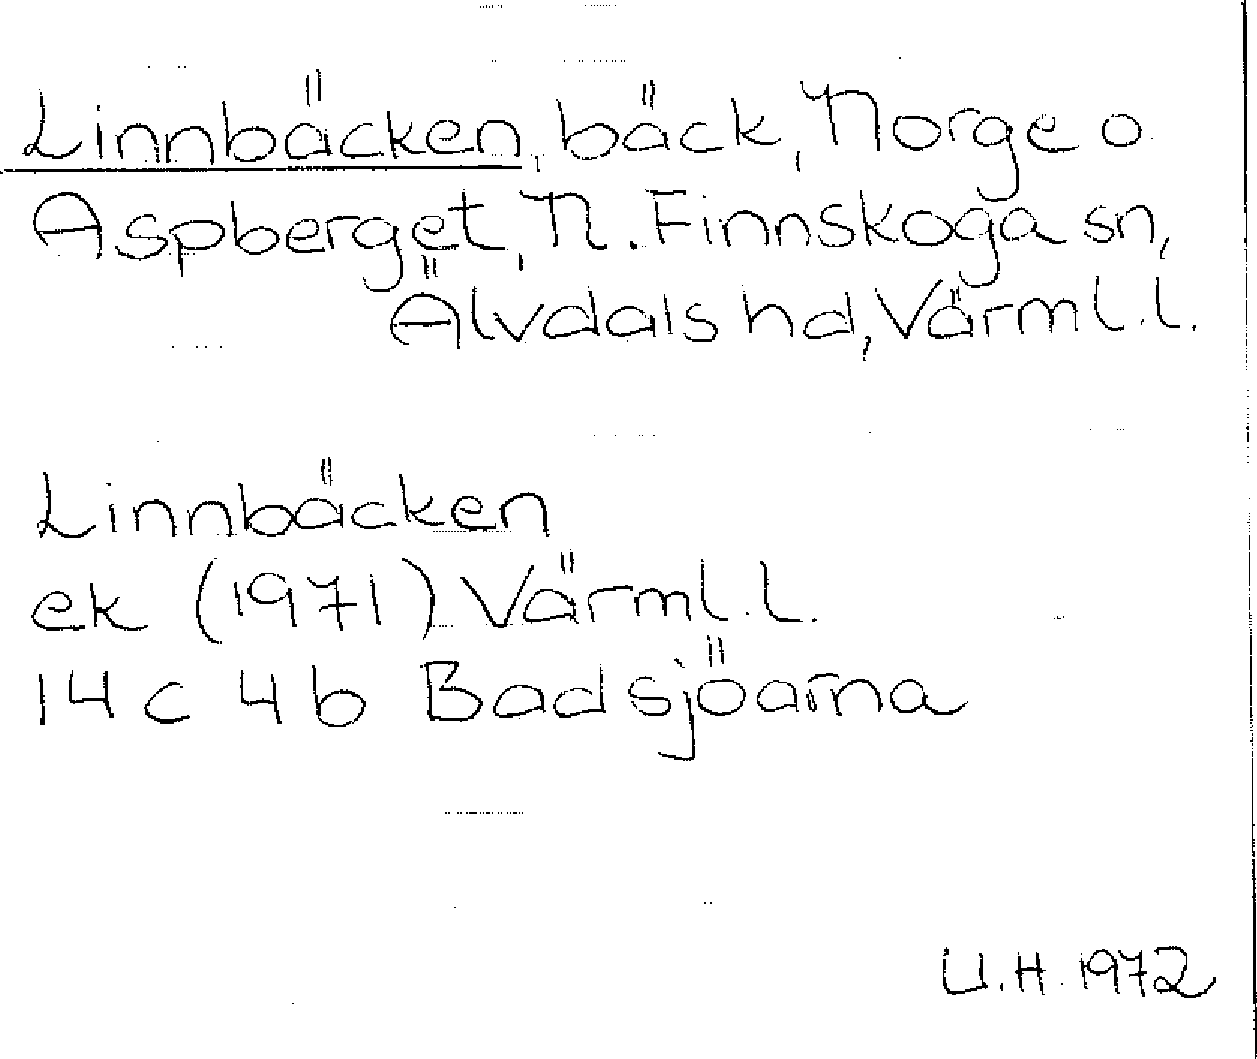 Linnbäcken, bäck, Norge o.
Aspberget, N. Finnskoga sn,
Älvdals hd, Värml. l.
Linnbäcken
ek (1971) Värml. l.
14c 4b Badsjöarna
U.H. 1972